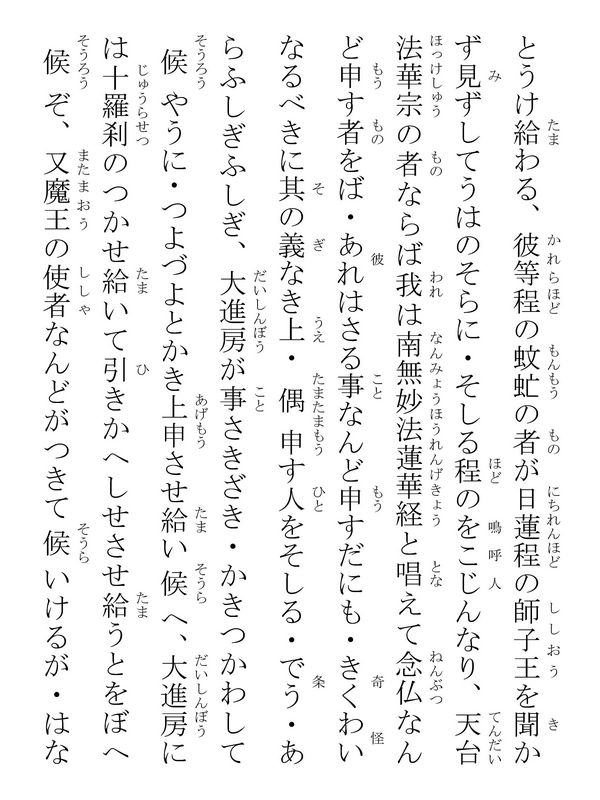 とうけ給わる、彼等程の蚊虻の者が日蓮程の師子王を聞か
ず見ずしてうはのそらに・そしる程のをこじんなり、天台
法華宗の者ならば我は南無妙法蓮華経と唱えて念仏なん
ど申す者をば・あれはさる事なんど申すだにも・きくわい
なるべきに其の義なき上・偶申す人をそしる・でう・あ
らふしぎふしぎ、大進房が事さきざき・かきつかわして
候やうに・つよづよとかき上申させ給い候へ、大進房に
は十羅刹のつかせ給いて引きかへしせさせ給うとをぼへ
候ぞ、又魔王の使者なんどがつきて候いけるが・はな